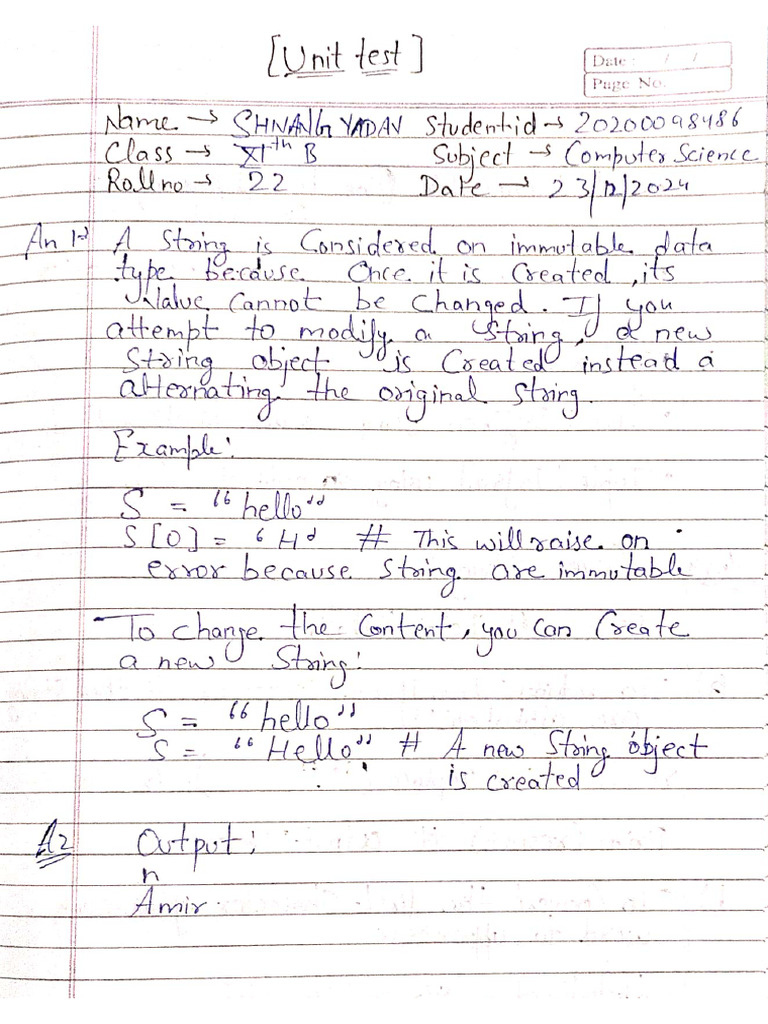 [Unit test]
Date: / /
Page No.
Name → SHNANG YADAV Student id → 20200098486
Class → XIth B Subject → Computer Science
Roll no → 22 Date → 23/12/2024
An 1→ A String is Considered on immutable data
type because Once it is Created, its
Value Cannot be Changed. If you
attempt to modify a String, a new
String object is Created instead a
alternating the original String.
Example:
S = "hello"
S[0] = 'H' # This will raise on
error because String are immutable
To change the Content, you can Create
a new String:
S = "hello"
S = "Hello" # A new String object
is created
A2 Output:
n
Amir